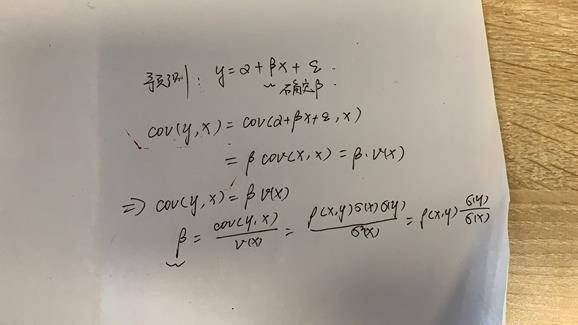 预测: y = α + βx + ε.
确定β.
cov(y, x) = cov(α+βx+ε, x)
= β cov(x, x) = β · V(x)
⇒ cov(y, x) = β V(x)
β = cov(y, x) / V(x) = ρ(x,y) σ(x) σ(y) / σ²(x) = ρ(x,y) σ(y) / σ(x)